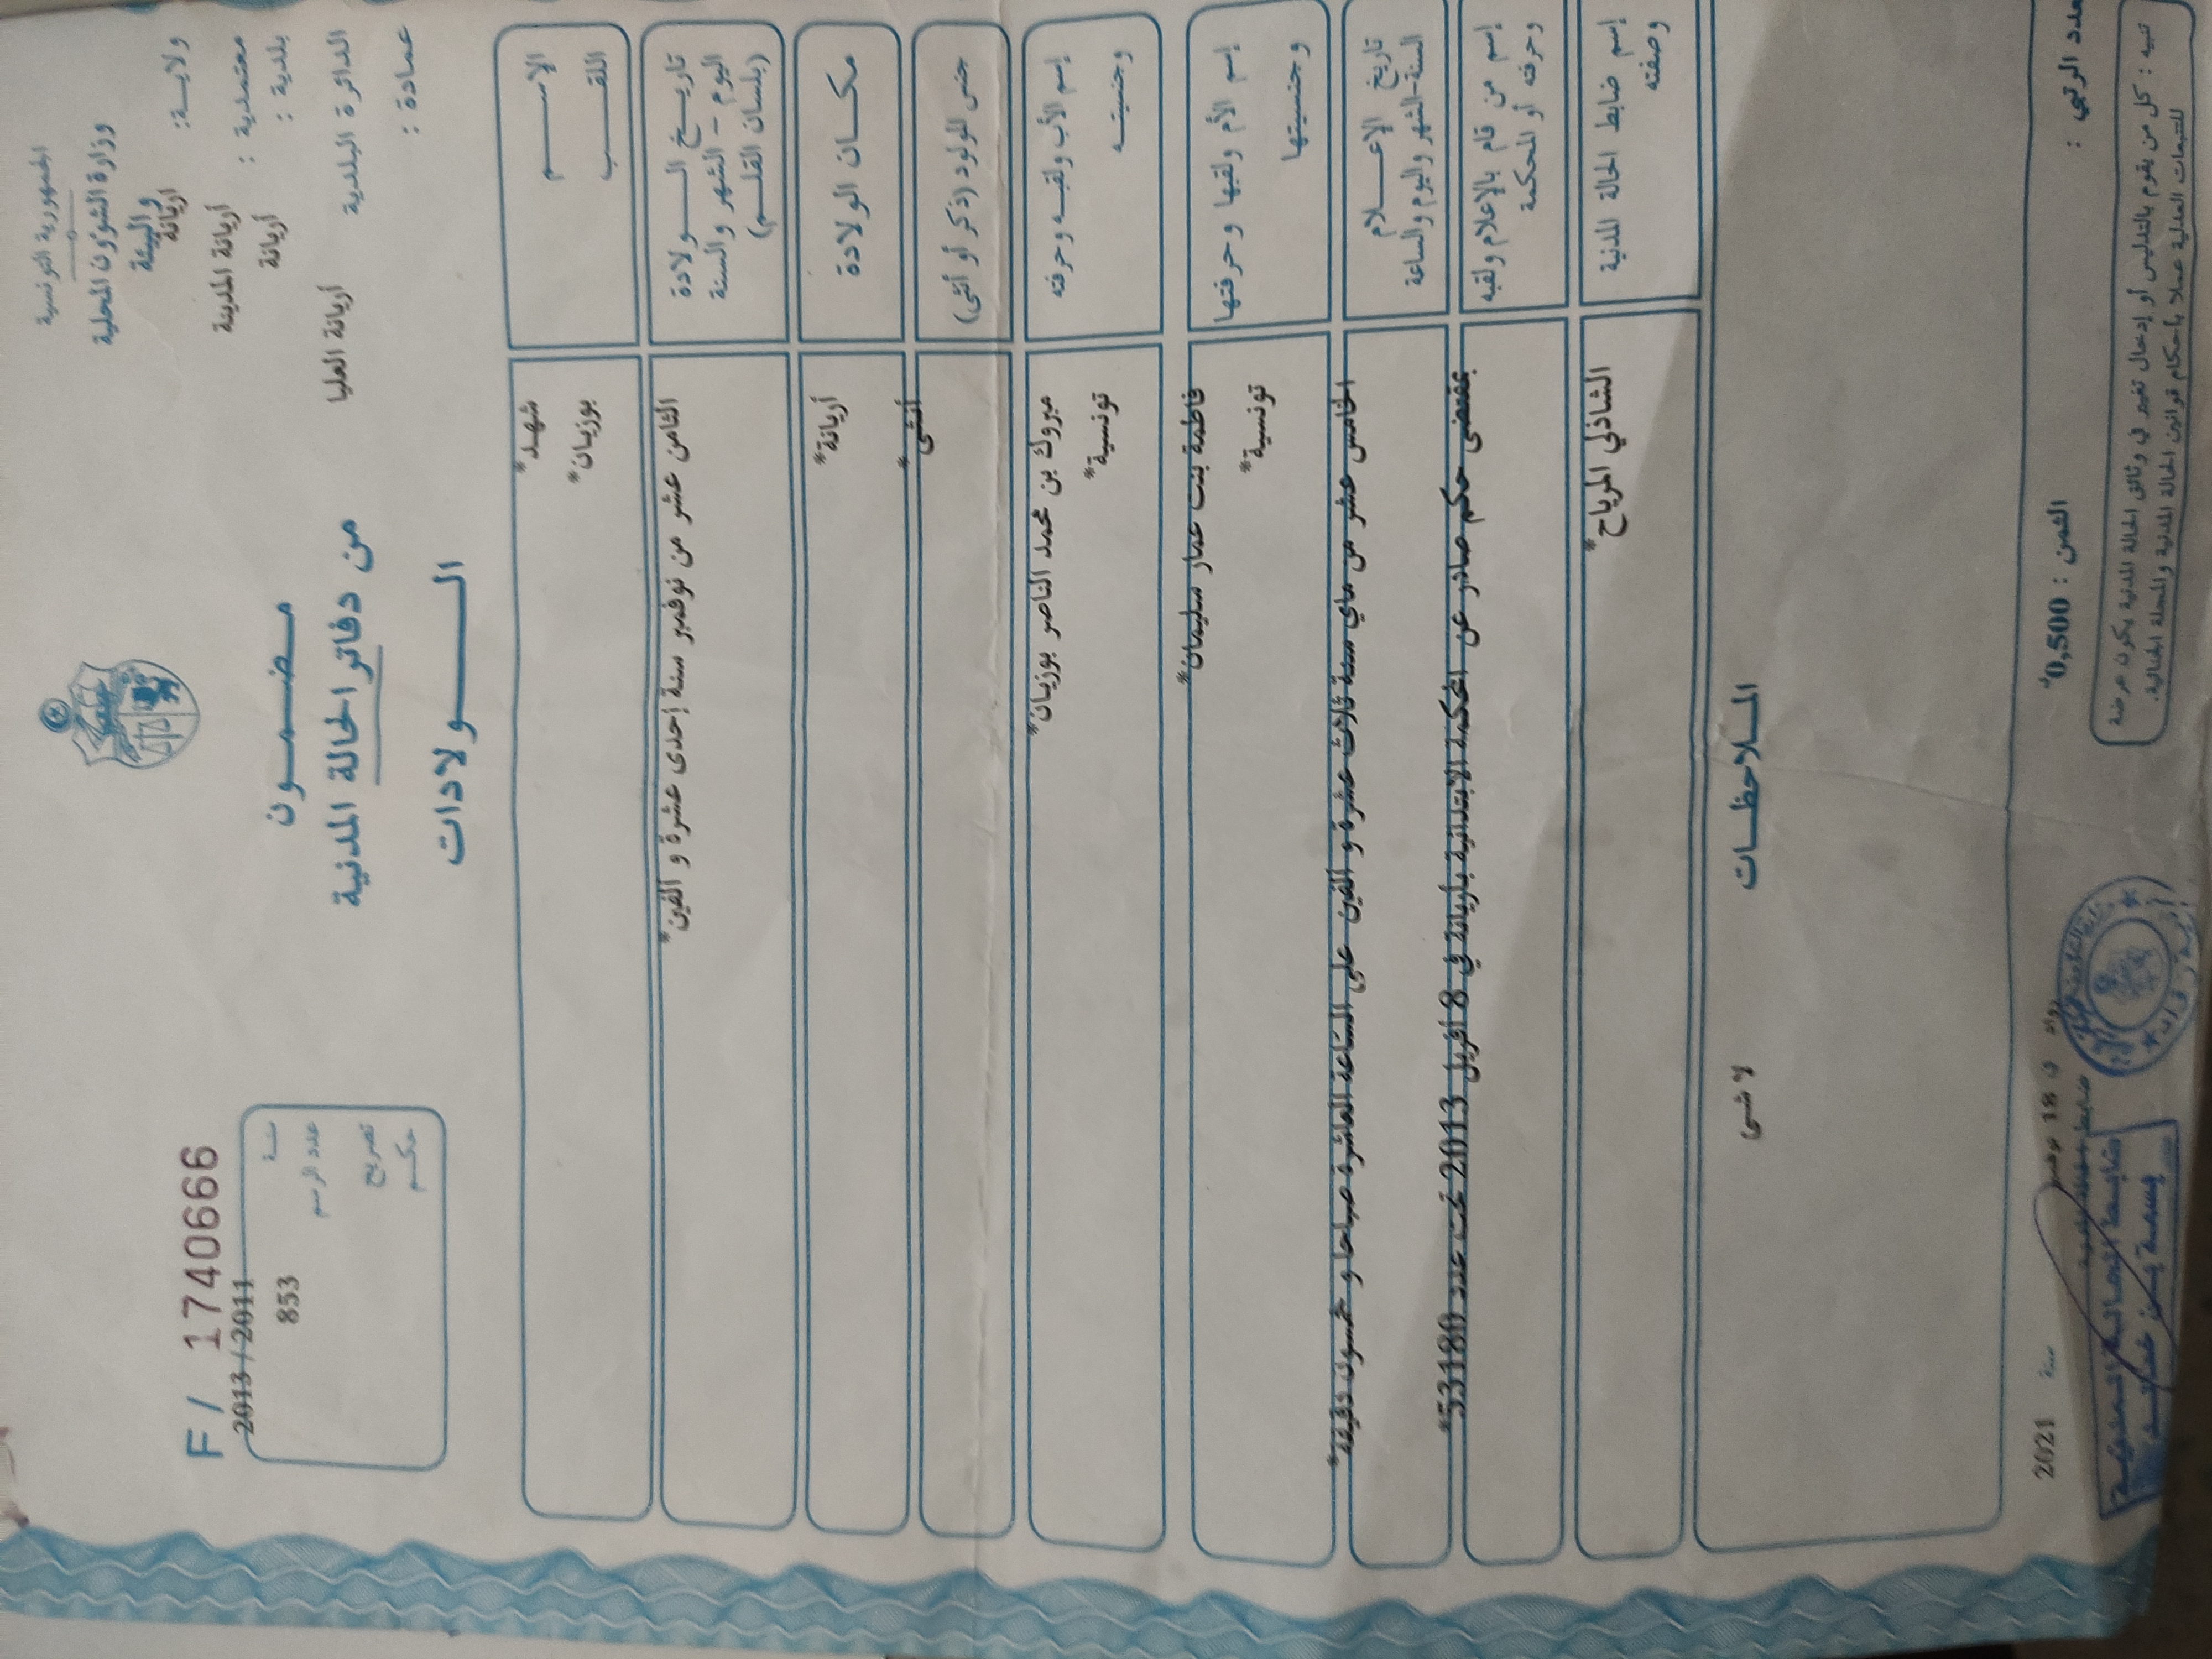 الجمهورية التونسية
وزارة الشؤون المحلية
والبيئة
ولايـة: أريانة
معتمدية : أريانة المدينة
بلدية : أريانة
الدائرة البلدية أريانة العليا
عمادة :
مـضـمـون
من دفاتر الحالة المدنية
الـولادات
F / 1740666
سنة 2013 / 2011
عدد الرسم 853
تصريح
حكـم
الإسـم شهد*
اللقـب بوزيان*
تاريـخ الـولادة
اليوم - الشهر والسنة
(بلسان القلـم)
الثامن عشر من نوفمبر سنة إحدى عشرة و ألفين*
مكـان الولادة أريانة*
جنس المولود (ذكر أو أنثى) أنثى*
إسم الأب ولقبـه وحرفته مبروك بن محمد الناصر بوزيان*
وجنسيتـه تونسية*
إسم الأم ولقبها وحرفتها فاطمة بنت عمار سليمان*
وجنسيتها تونسية*
تاريخ الإعـلام
السنة-الشهر واليوم والساعة
الخامس عشر من ماي سنة ثلاث عشرة و ألفين على الساعة العاشرة صباحا و خمسون دقيقة*
إسم من قام بالإعلام ولقبه
وحرفته أو المحكمة
بمقتضى حكم صادر عن المحكمة الابتدائية باريانة في 8 افريل 2013 تحت عدد 53180*
إسم ضابط الحالة المدنية الشاذلي المرياح*
وصفته
المـلاحظـات
لا شىء
عدد الرتبي :
الثمن : 0,500د
رواد في 18 نوفمبر سنة 2021
ضابط الحالة المدنية
ضابط الحالة المدنية
تنبيه : كل من يقوم بالتدليس أو إدخال تغيير في وثائق الحالة المدنية يكون عرضة
للتتبعات العدلية عملا بأحكام قوانين الحالة المدنية والمجلة الجنائية.